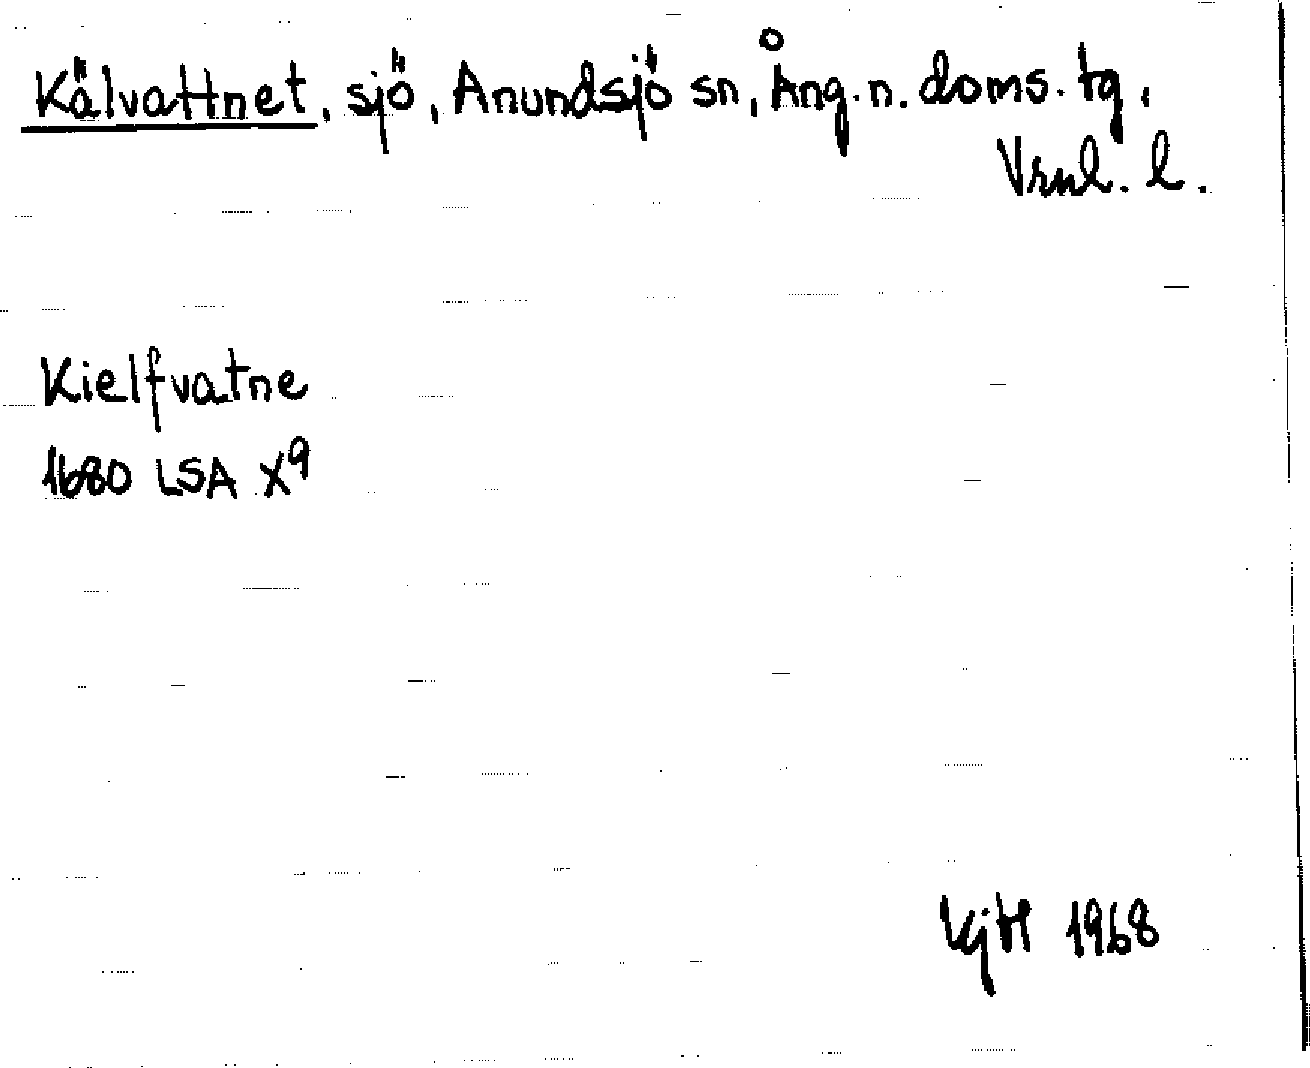 Kälvattnet, sjö, Anundsjö sn, Ång. n. doms. tg,
Vrnl. l.
Kielfvatne
1680 LSA X9
KjH 1968